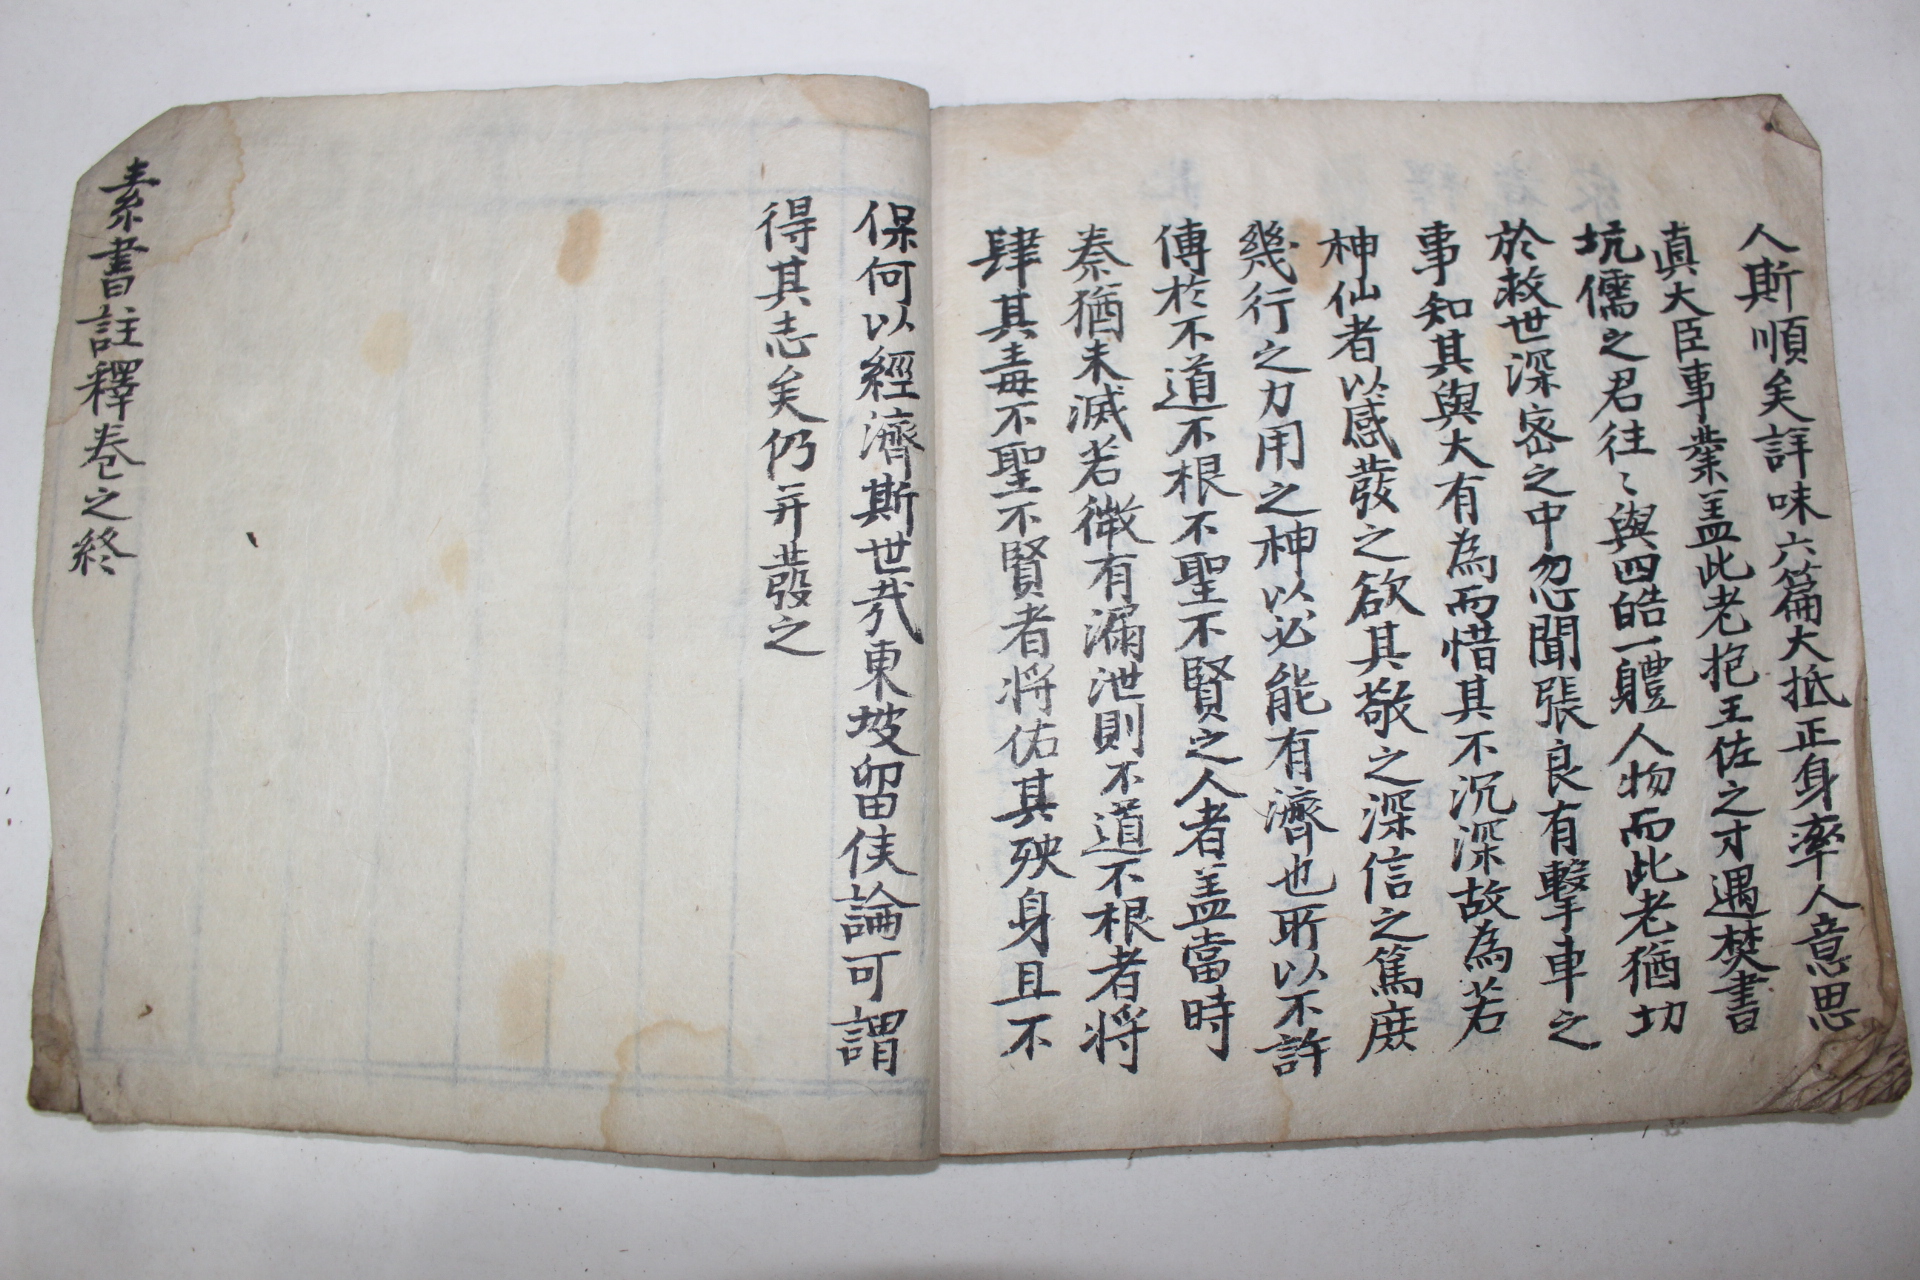 人斯順矣詳味六篇大抵正身率人意思
眞大臣事業盖此老抱王佐之才遇焚書
坑儒之君往〻與四皓一軆人物而此老猶切
於救世深密之中忽聞張良有擊車之
事知其與大有為而惜其不沉深故為若
神仙者以感發之欲其敬之深信之篤庶
幾行之力用之神以必能有濟也所以不許
傳於不道不根不聖不賢之人者盖當時
秦猶未滅若微有漏泄則不道不根者將
肆其毒不聖不賢者將佑其殃身且不
保何以經濟斯世哉東坡留侯論可謂
得其志矣仍并發之
素書註釋卷之終